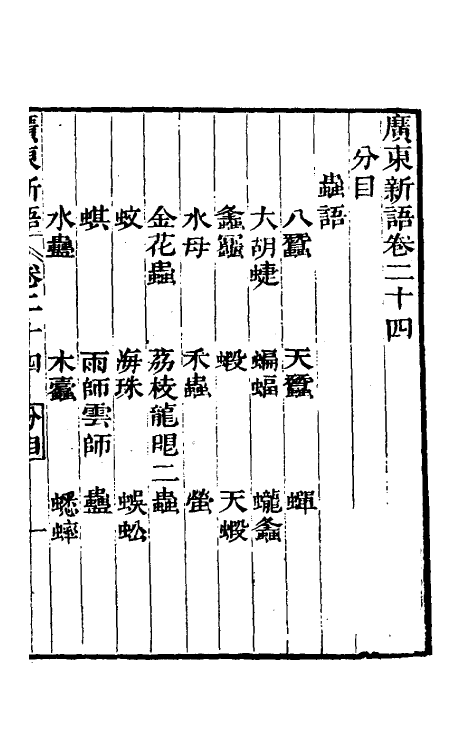 廣東新語卷二十四
分目
蟲語
八蠶 天蠶 蟬
大胡蜨 蝙蝠 蠬螽
螽 蝦 天蝦
水母 禾蟲 螢
金花蟲 荔枝龍眼二蟲
蚊 海珠 蜈蚣
蜞 雨師雲師 蠱
水蠱 木蠹 蟋蟀
廣東新語 卷二十四 分目 一